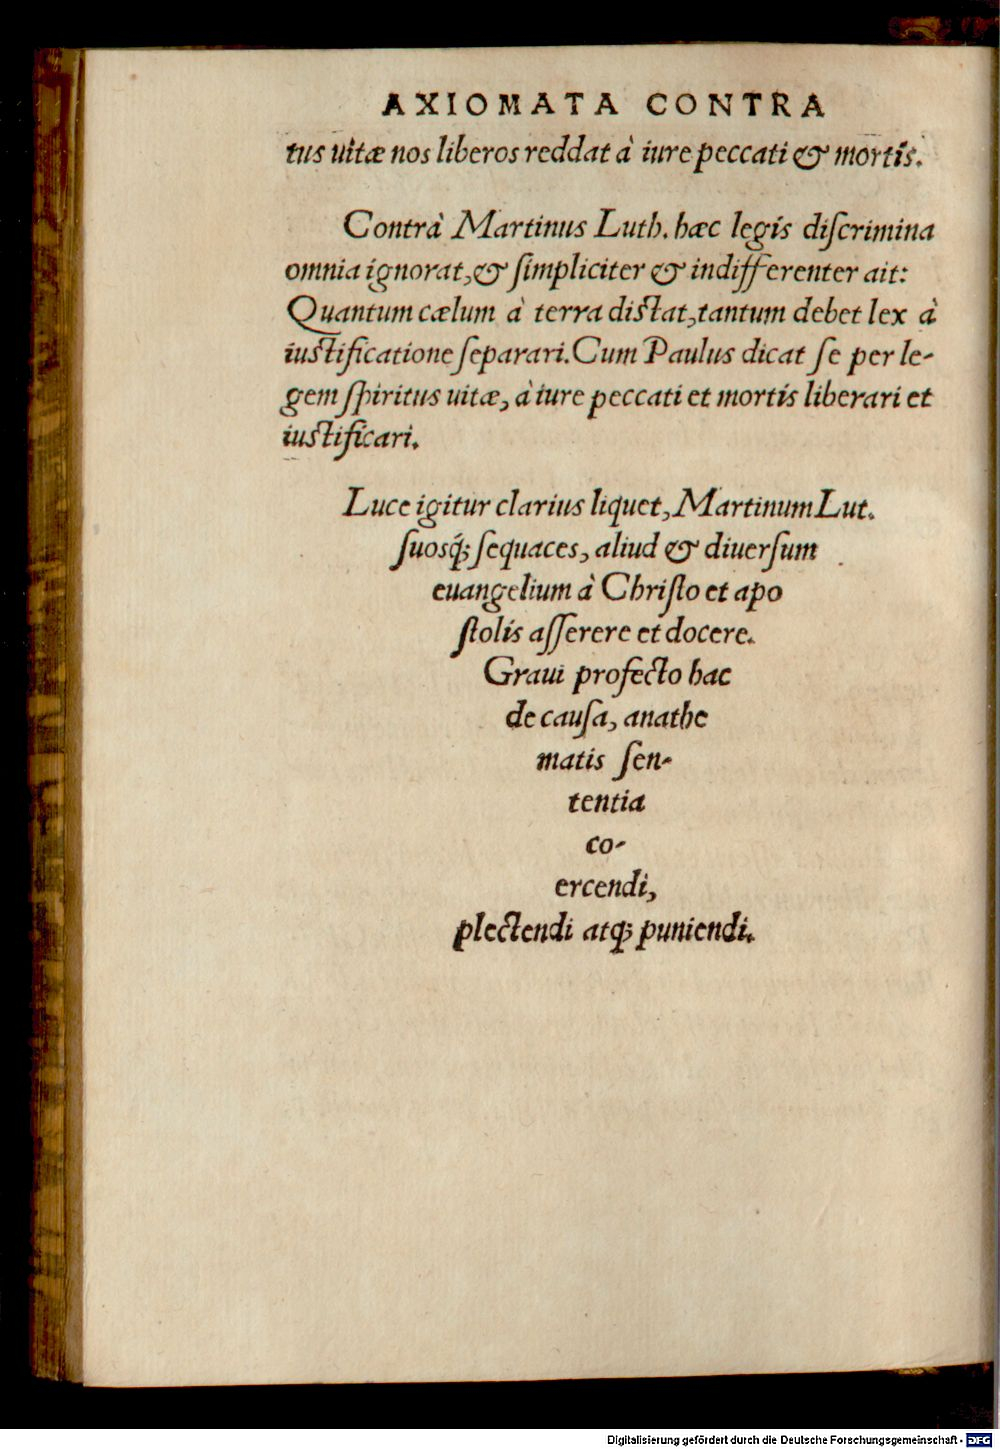 AXIOMATA CONTRA
tus uitæ nos liberos reddat à iure peccati & mortis.
Contrà Martinus Luth. hæc legis diſcrimina
omnia ignorat, & ſimpliciter & indifferenter ait:
Quantum cælum à terra diſtat, tantum debet lex à
iuſtificatione ſeparari. Cum Paulus dicat ſe per le-
gem ſpiritus uitæ, à iure peccati et mortis liberari et
iuſtificari.
Luce igitur clarius liquet, Martinum Lut.
ſuosq́; ſequaces, aliud & diuerſum
euangelium à Chriſto et apo
ſtolis aſſerere et docere.
Graui profecto hac
de cauſa, anathe
matis ſen-
tentia
co-
ercendi,
plectendi atq; puniendi.
Digitalisierung gefördert durch die Deutsche Forschungsgemeinschaft - DFG